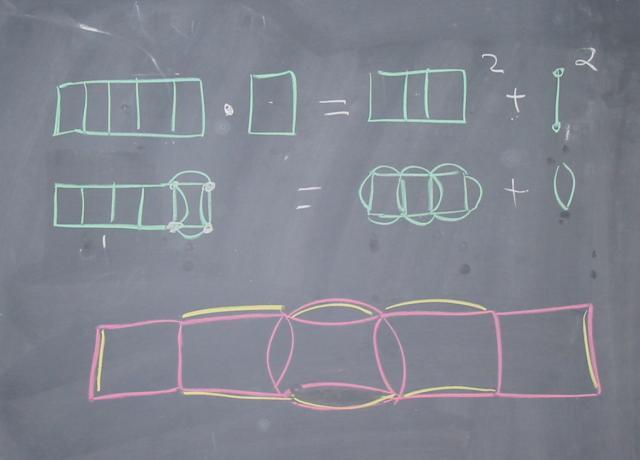 · = 2 + 2
= +